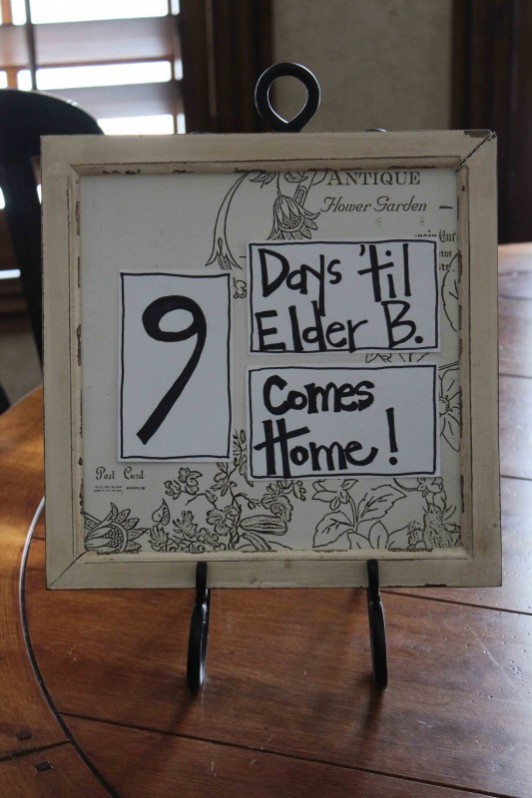 ANTIQUE
Flower Garden
9
Days 'til
Elder B.
Comes
Home!
Post Card